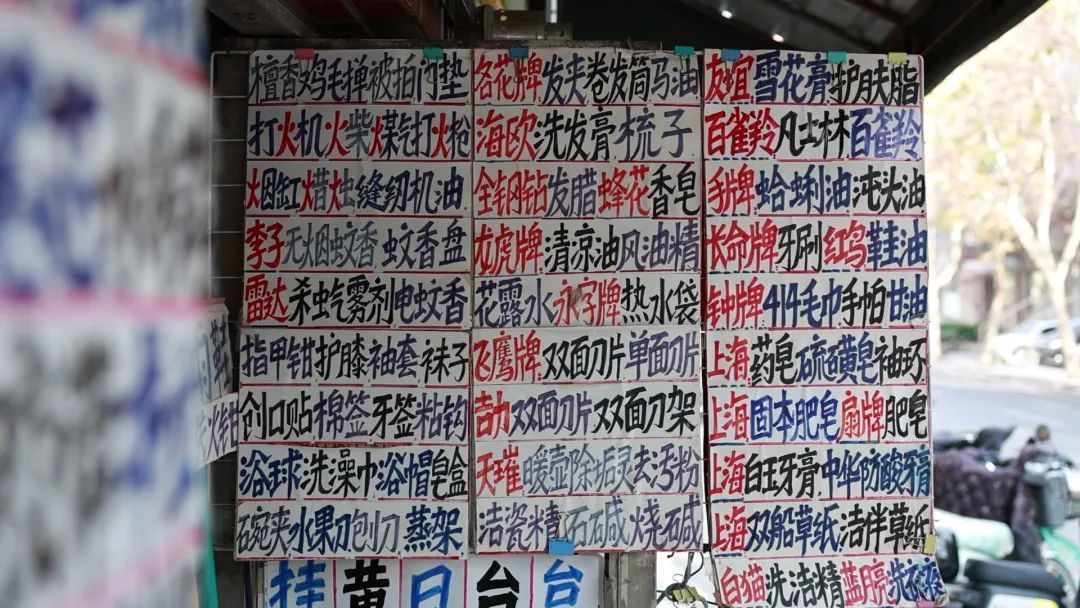 檀香鸡毛掸被拍门垫
打火机火柴煤气打火枪
烟缸蜡烛缝纫机油
李子无烟蚊香蚊香盘
雷达杀虫气雾剂电蚊香
指甲钳护膝袖套袜子
创口贴棉签牙签粘钩
浴球洗澡巾浴帽皂盒
碗夹水果刀刨刀蒸架
各花牌发夹卷发筒马油
海欧洗发膏梳子
全钢钻发腊蜂花香皂
龙虎牌清凉油风油精
花露水永字牌热水袋
飞鹰牌双面刀片单面刀片
吉力双面刀片双面刀架
天璀暖壶除垢灵去污粉
洁瓷精石碱烧碱
友谊雪花膏护肤脂
百雀羚凡士林百雀羚
手牌蛤蜊油沌头油
长命牌牙刷红鸟鞋油
钟牌414毛巾手帕甘油
上海药皂硫磺皂袖环
上海固本肥皂扇牌肥皂
上海白玉牙膏中华防酸牙膏
上海双船草纸洁伴草纸
白猫洗洁精蓝亮洗衣液
挂黄日台台